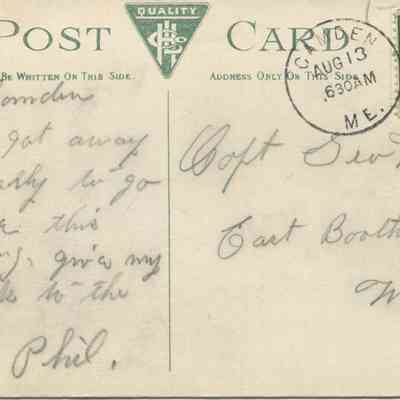 POST CARD
QUALITY
BE WRITTEN ON THIS SIDE.
ADDRESS ONLY ON THIS SIDE
CAMDEN
AUG 13
630AM
ME.
Camden
got away
to go
this
give my
to the
Phil.
Capt Geo
East Booth
M